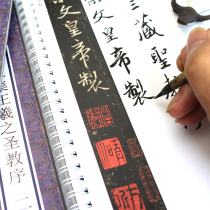 三藏聖
文皇帝製
文皇帝製
王羲之圣教序